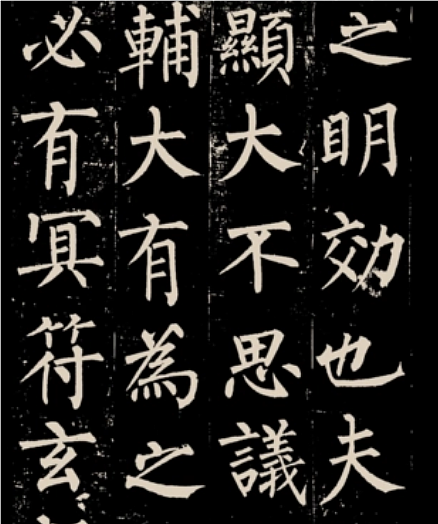 之明効也夫
顯大不思議
輔大有為之
必有冥符玄